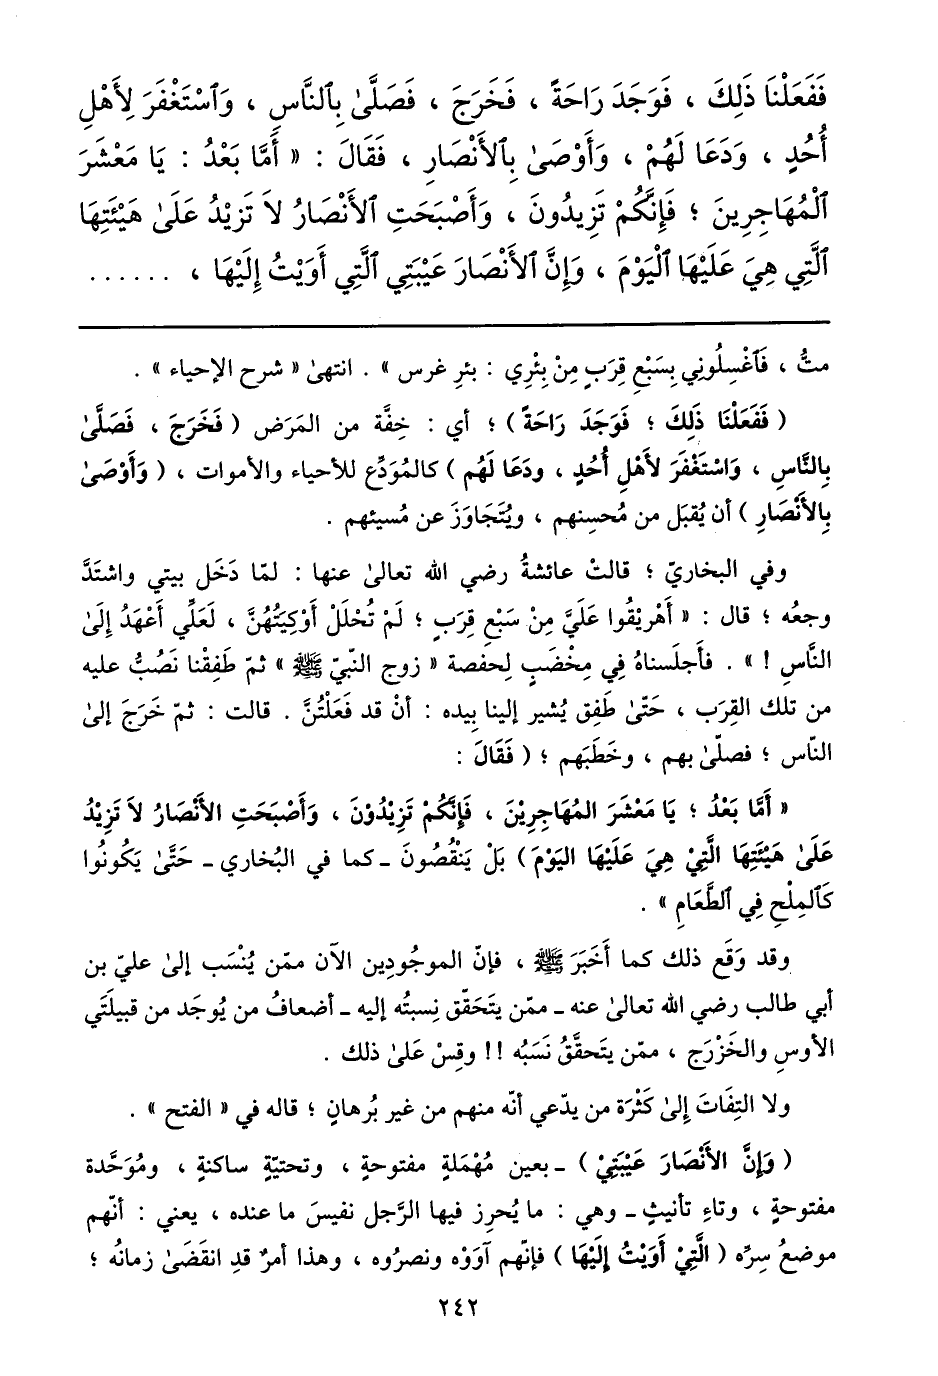 فَفَعَلْنَا ذَلِكَ ، فَوَجَدَ رَاحَةً ، فَخَرَجَ ، فَصَلَّىٰ بِٱلنَّاسِ ، وَٱسْتَغْفَرَ لِأَهْلِ
أُحُدٍ ، وَدَعَا لَهُمْ ، وَأَوْصَىٰ بِٱلأَنْصَارِ ، فَقَالَ : « أَمَّا بَعْدُ : يَا مَعْشَرَ
ٱلْمُهَاجِرِينَ ؛ فَإِنَّكُمْ تَزِيدُونَ ، وَأَصْبَحَتِ ٱلأَنْصَارُ لاَ تَزِيْدُ عَلَىٰ هَيْئَتِهَا
ٱلَّتِي هِيَ عَلَيْهَا ٱلْيَوْمَ ، وَإِنَّ ٱلأَنْصَارَ عَيْبَتِي ٱلَّتِي أَوَيْتُ إِلَيْهَا ، ......
متُّ ، فَٱغْسِلُونِي بِسَبْعِ قِرَبٍ مِنْ بِئْرِي : بئرِ غرس » . انتهىٰ « شرح الإحياء » .
( فَفَعَلْنَا ذَلِكَ ؛ فَوَجَدَ رَاحَةً ) ؛ أي : خِفَّة من المَرَض ( فَخَرَجَ ، فَصَلَّىٰ
بِالنَّاسِ ، وَاسْتَغْفَرَ لأَهْلِ أُحُدٍ ، ودَعَا لَهُم ) كالمُوَدِّع للأحياء والأموات ، ( وَأَوْصَىٰ
بِالأَنْصَارِ ) أن يُقبَل من مُحسِنهم ، ويُتَجَاوَزَ عن مُسيئهم .
وفي البخاريّ ؛ قالتْ عائشةُ رضي الله تعالىٰ عنها : لمّا دَخَل بيتي واشتَدَّ
وجعُه ؛ قال : « أَهْرِيْقُوا عَلَيَّ مِنْ سَبْعِ قِرَبٍ ؛ لَمْ تُحْلَلْ أَوْكِيَتُهُنَّ ، لَعَلِّي أَعْهَدُ إِلَىٰ
النَّاسِ ! » . فأَجلَسناهُ فِي مِخْضَبٍ لِحفصة « زوج النبيّ ﷺ » ثمّ طَفِقْنا نَصُبُّ عليه
من تلك القِرَب ، حَتّىٰ طَفِق يُشير إلينا بِيده : أنْ قد فَعَلْتُنَّ . قالت : ثمّ خَرَجَ إلىٰ
النّاس ؛ فصلّىٰ بهم ، وخَطَبَهم ؛ ( فَقَالَ :
« أَمَّا بَعْدُ ؛ يَا مَعْشَرَ المُهَاجِرِيْنَ ، فَإِنَّكُمْ تَزِيْدُوْنَ ، وَأَصْبَحَتِ الأَنْصَارُ لاَ تَزِيْدُ
عَلَىٰ هَيْئَتِهَا الَّتِيْ هِيَ عَلَيْهَا اليَوْمَ ) بَلْ يَنْقُصُونَ ـ كما في البُخاري ـ حَتَّىٰ يَكُونُوا
كَٱلمِلْحِ فِي ٱلطَّعَامِ » .
وقد وَقَع ذلك كما أَخَبَرَ ﷺ ، فإنّ الموجُودِين الآن ممّن يُنْسَب إلىٰ عليّ بن
أبي طالب رضي الله تعالىٰ عنه ـ ممّن يتَحَقّق نِسبتُه إليه ـ أضعافُ من يُوجَد من قبيلَتَي
الأوسِ والخَزْرَج ، ممّن يتَحقَّقُ نَسَبُه !! وقِسْ عَلىٰ ذلك .
ولا التِفَاتَ إِلىٰ كَثْرَة من يدّعي أنّه منهم من غير بُرهانٍ ؛ قاله في « الفتح » .
( وَإِنَّ الأَنْصَارَ عَيْبَتِيْ ) ـ بعين مُهْمَلةٍ مفتوحةٍ ، وتحتيّةٍ ساكنةٍ ، ومُوَحَّدة
مفتوحةٍ ، وتاءِ تأنيثٍ ـ وهي : ما يُحرِز فيها الرَّجل نفيسَ ما عنده ، يعني : أنّهم
موضعُ سِرِّه ( الَّتِيْ أَوَيْتُ إِلَيْهَا ) فإنّهم آوَوْه ونصرُوه ، وهذا أمرٌ قدِ انقَضَىٰ زمانُه ؛
٢٤٢